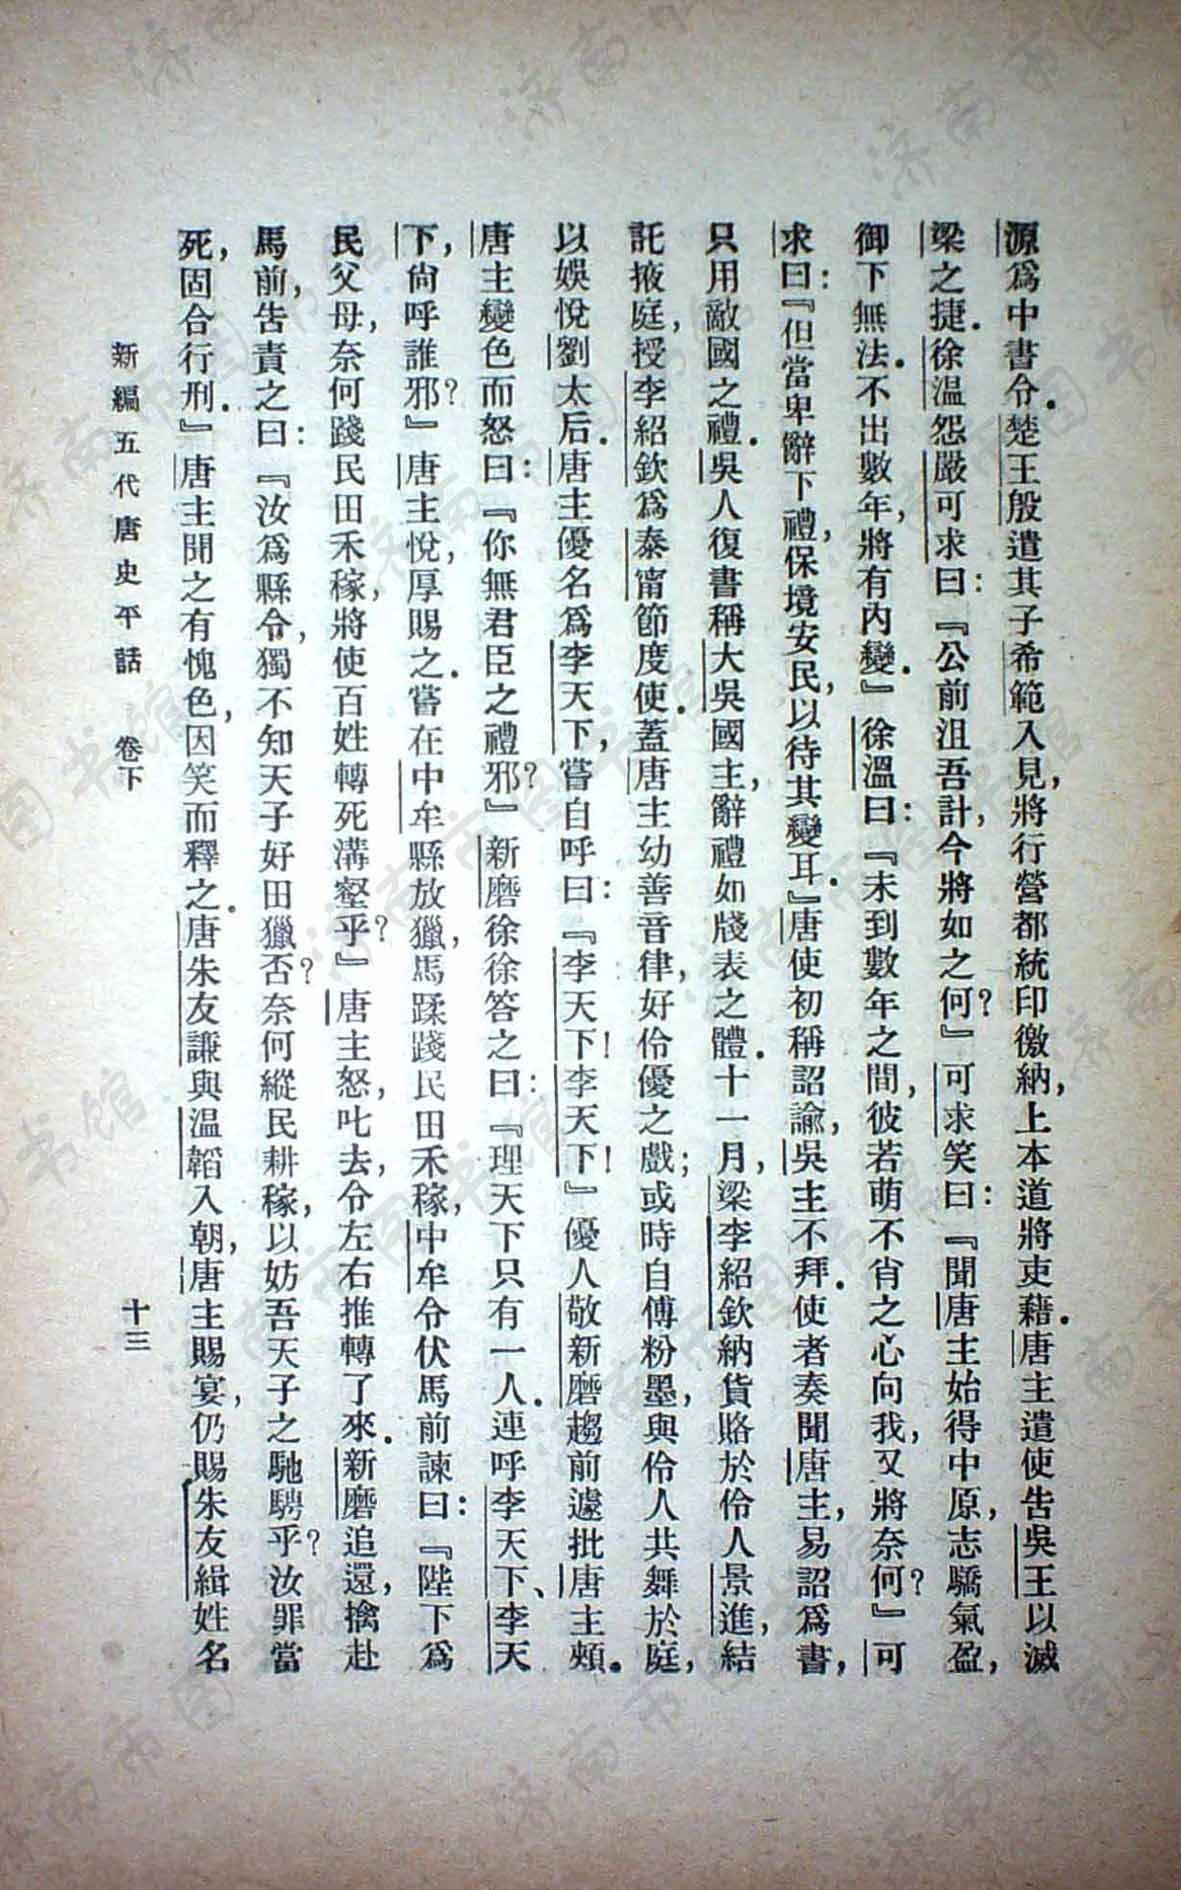 源爲中書令．楚王殷遣其子希範入見，將行營都統印繳納，上本道將吏藉．唐主遣使告吳王以滅
梁之捷．徐溫怨嚴可求曰：『公前沮吾計，今將如之何？』可求笑曰：『聞唐主始得中原，志驕氣盈，
御下無法．不出數年，將有內變．』徐溫曰：『未到數年之間，彼若萌不肯之心向我，又將奈何？』可
求曰：『但當卑辭下禮，保境安民，以待其變耳．』唐使初稱詔諭，吳主不拜．使者奏聞唐主，易詔爲書，
只用敵國之禮．吳人復書稱大吳國主，辭禮如牋表之體．十一月，梁李紹欽納貨賂於伶人景進，結
託掖庭，授李紹欽爲泰甯節度使．蓋唐主幼善音律，好伶優之戲；或時自傅粉墨，與伶人共舞於庭，
以娛悅劉太后．唐主優名爲李天下，嘗自呼曰：『李天下！李天下！』優人敬新磨趨前遽批唐主頰．
唐主變色而怒曰：『你無君臣之禮邪？』新磨徐徐答之曰：『理天下只有一人．連呼李天下、李天
下，尙呼誰邪？』唐主悅，厚賜之．嘗在中牟縣放獵，馬蹂踐民田禾稼，中牟令伏馬前諫曰：『陛下爲
民父母，奈何踐民田禾稼，將使百姓轉死溝壑乎？』唐主怒，叱去，令左右推轉了來．新磨追還，擒赴
馬前，告責之曰：『汝爲縣令，獨不知天子好田獵否？奈何縱民耕稼，以妨吾天子之馳騁乎？汝罪當
死，固合行刑．』唐主聞之有愧色，因笑而釋之．唐朱友謙與溫韜入朝，唐主賜宴，仍賜朱友緝姓名
新編五代唐史平話　卷下　十三
济南市图书馆